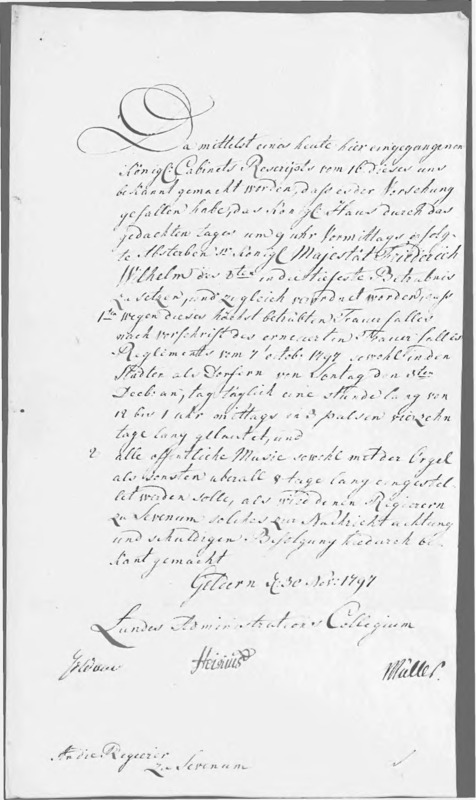 Da mittelst eines heute hier eingegangenen
Königl: Cabinets Rescripts vom 16 dieses uns
bekannt gemacht worden, daß es der Vorsehung
gefallen habe, das Königl Haus durch das
gedachten tages um 9 uhr Vormittags erfolg-
te Absterben Sr Königl Majestät Friederich
Wilhelm des 2ten in die tiefeste Betrübnis
zu setzen, und zugleich verordnet worden, daß
1tens wegen dieses höchst betrübten Trauerfalles
nach vorschrift des erneuerten Trauer falles
Reglements vom 7 octob 1797 sowohl in den
Städten als Dörfern von Sontag den 3ten
Decbr an, tag täglich eine stunde lang von
12 bis 1 uhr mittags in 3 pulsen vierzehn
tage lang geläutet, und
2 alle öffentliche Music sowohl mit der Orgel
als sonsten überall 8 tage lang eingestel-
let werden solle, als wird denen Regierern
zu Sevenum solches zur Nachricht achtung
und schuldigen Befolgung hiedurch be-
kant gemacht
Geldern d 30 Nov: 1797
Landes Administrations Collegium
Heinius Müller
An die Regierer
zu Sevenum